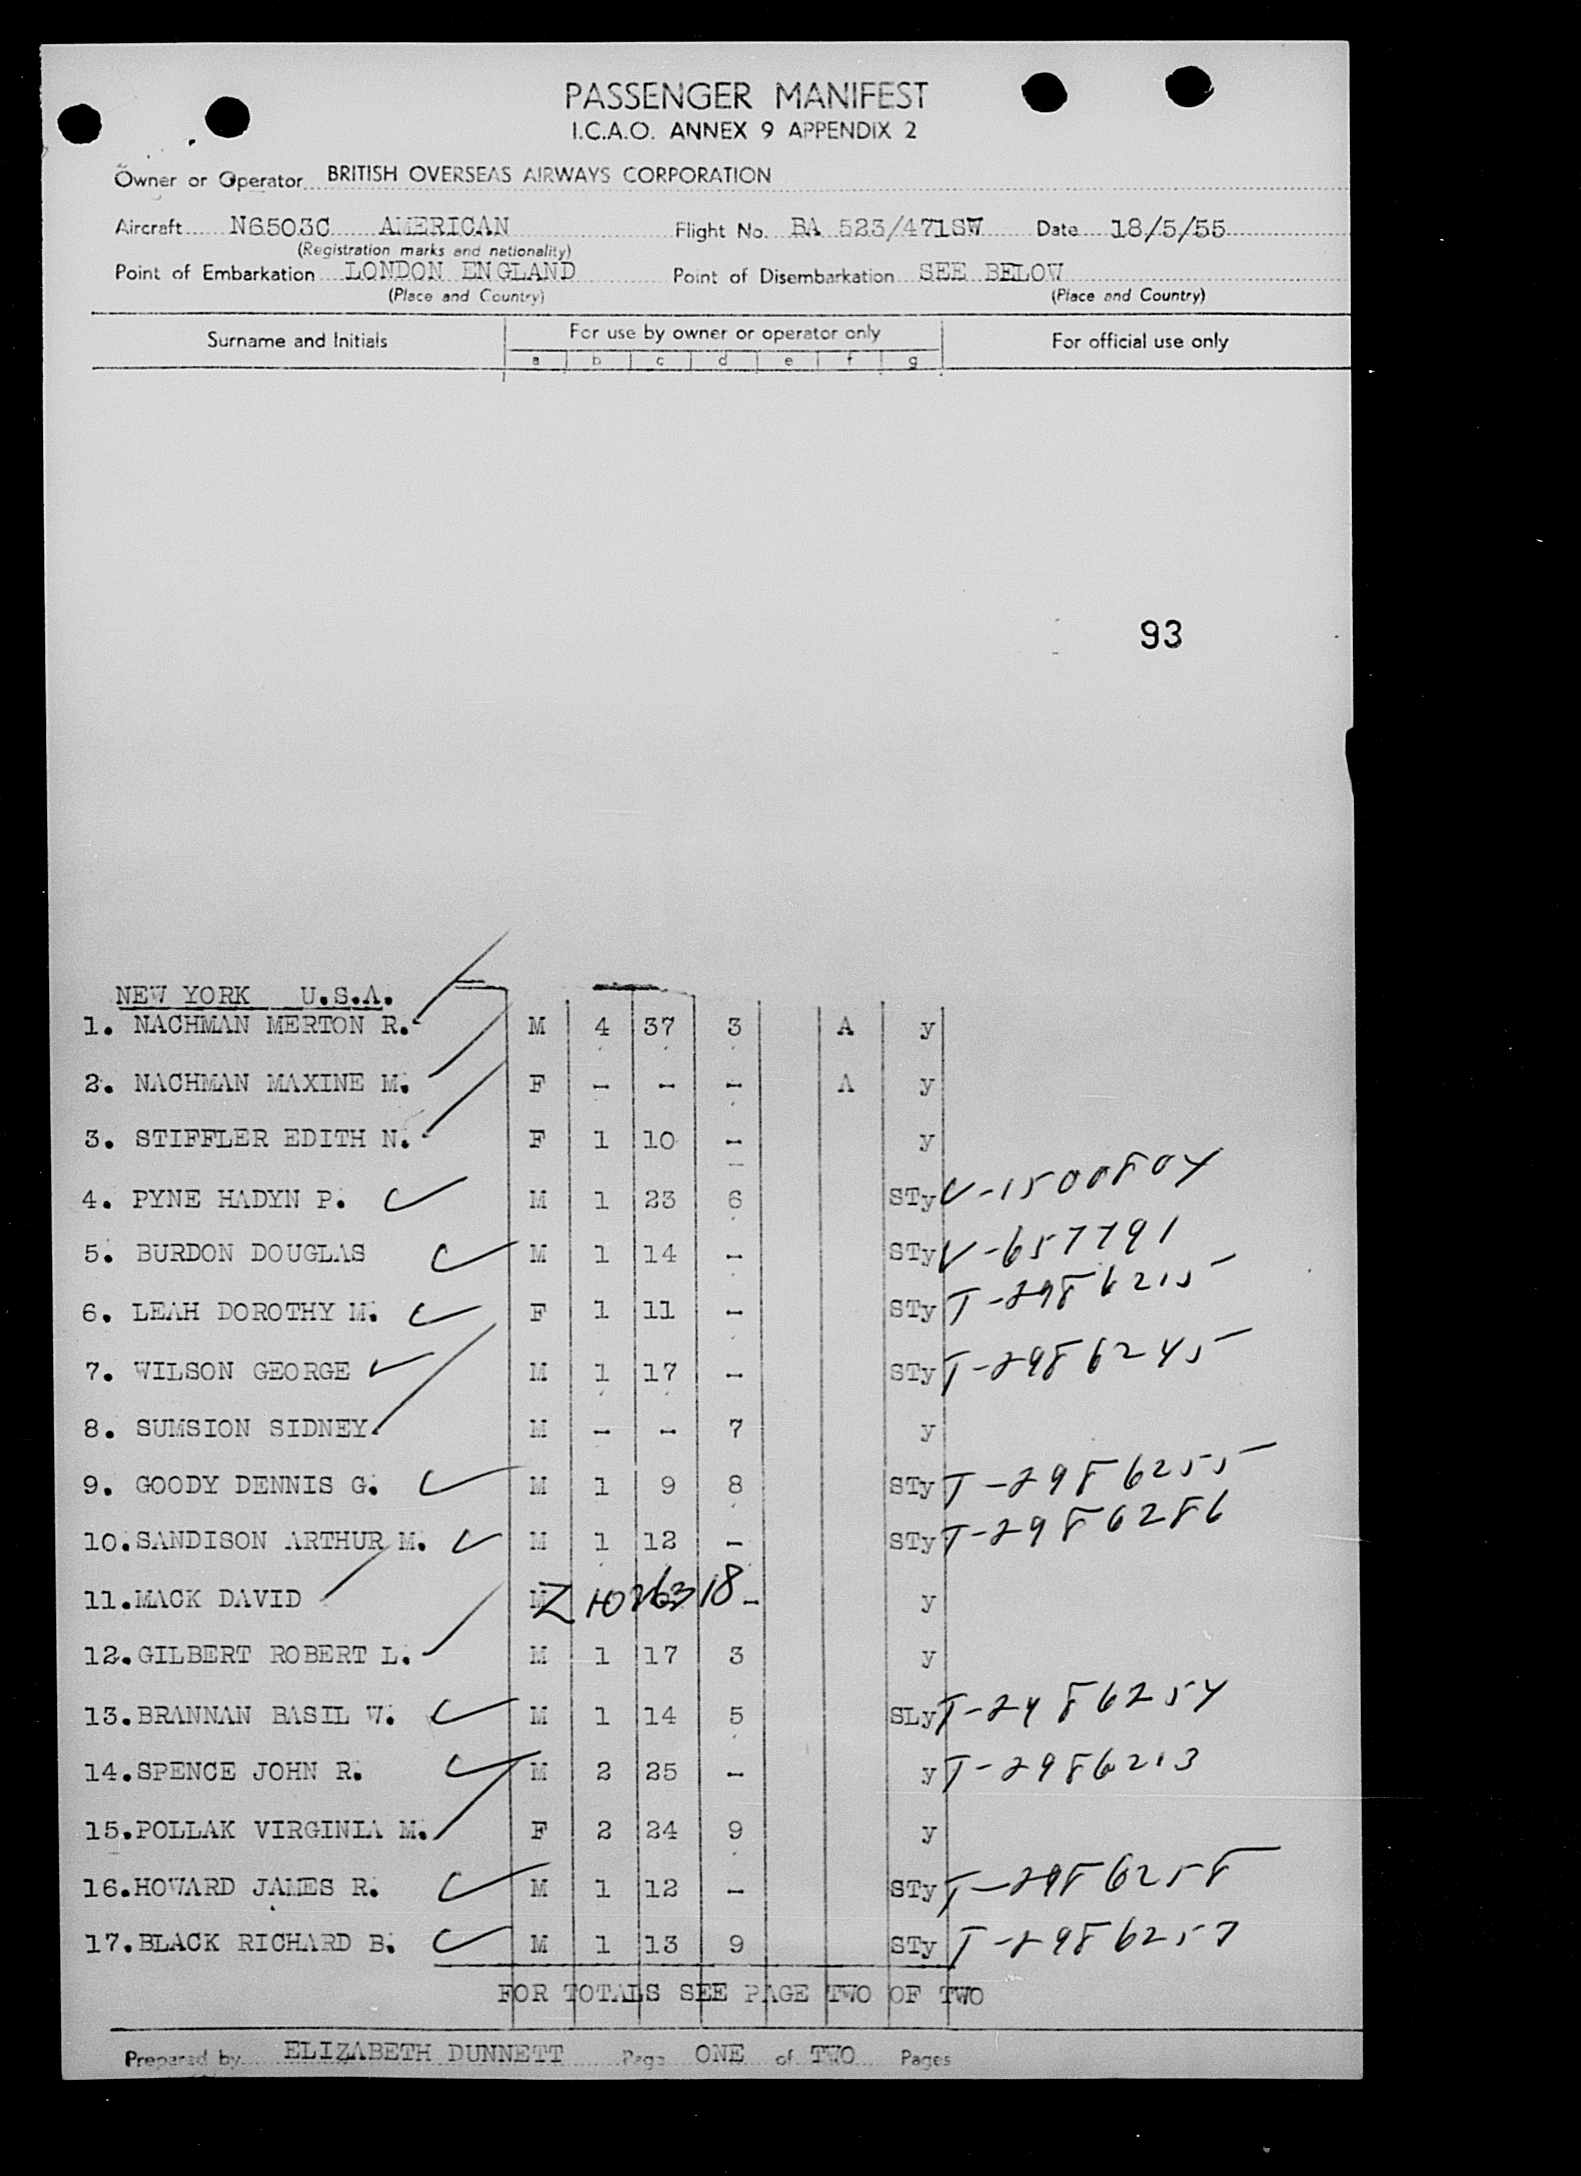 PASSENGER MANIFEST
I.C.A.O. ANNEX 9 APPENDIX 2
Owner or Operator BRITISH OVERSEAS AIRWAYS CORPORATION
Aircraft N6503C AMERICAN Flight No. BA 523/471SW Date 18/5/55
(Registration marks and nationality)
Point of Embarkation LONDON ENGLAND Point of Disembarkation SEE BELOW
(Place and Country) (Place and Country)
Surname and Initials For use by owner or operator only For official use only
a b c d e f g
93
NEW YORK U.S.A.
1. NACHMAN MERTON R. M 4 37 3 A y
2. NACHMAN MAXINE M. F - - - A y
3. STIFFLER EDITH N. F 1 10 - y
4. PYNE HADYN P. M 1 23 6 STy V-1500804
5. BURDON DOUGLAS M 1 14 - STy V-657791
6. LEAH DOROTHY M. F 1 11 - STy T-2986215
7. WILSON GEORGE M 1 17 - STy T-2986245
8. SUMSION SIDNEY. M - - 7 y
9. GOODY DENNIS G. M 1 9 8 STy T-2986255
10. SANDISON ARTHUR M. M 1 12 - STy T-2986286
11. MACK DAVID M - y
12. GILBERT ROBERT L. M 1 17 3 y
13. BRANNAN BASIL W. M 1 14 5 SLy T-2986254
14. SPENCE JOHN R. M 2 25 - y T-2986213
15. POLLAK VIRGINIA M. F 2 24 9 y
16. HOWARD JAMES R. M 1 12 - STy T-2986258
17. BLACK RICHARD B. M 1 13 9 STy T-2986257
FOR TOTALS SEE PAGE TWO OF TWO
Prepared by ELIZABETH DUNNETT Page ONE of TWO Pages